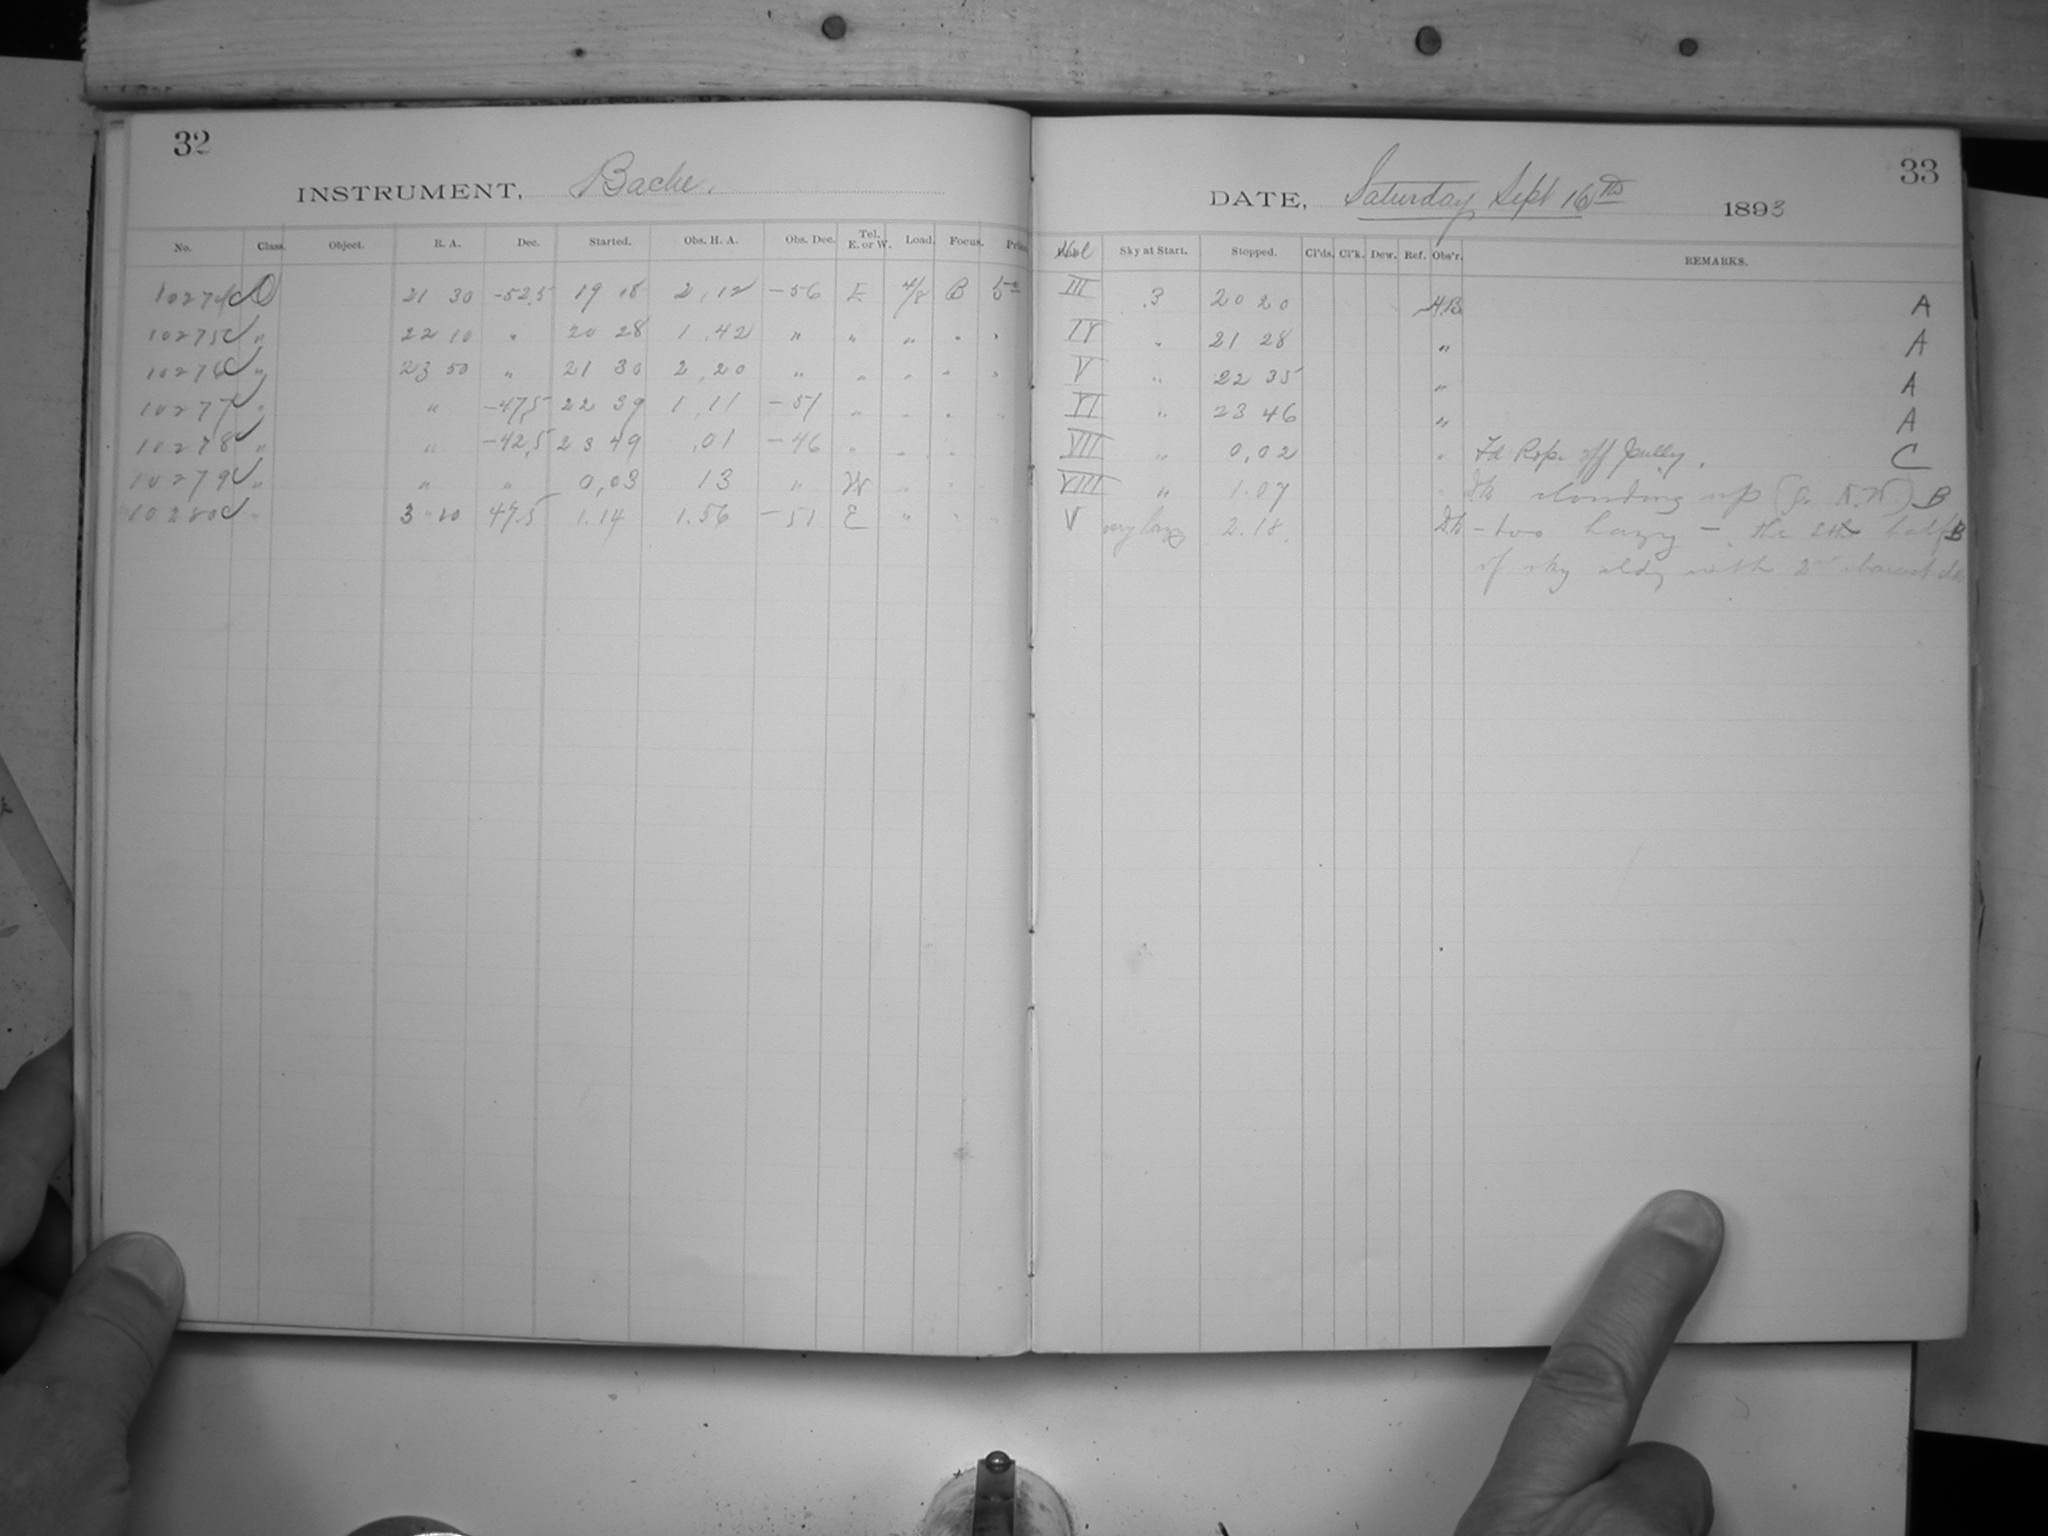 32
INSTRUMENT, Bache.
No. Class. Object. R. A. Dec. Started. Obs. H. A. Obs. Dec. Tel. E. or W. Load. Focus.
10274 D 21 30 -52,5 19 18 2,12 -56 E 4/8 B
10275 " 22 10 " 20 28 1,42 " " " " "
10276 " 23 50 " 21 30 2,20 " " " " "
10277 " " -47,5 22 39 1,11 -51 " " " "
10278 " " -42,5 23 49 ,01 -46 " " " "
10279 " " " 0,03 13 " W " " "
10280 " 3 10 47,5 1.14 1.56 -51 E " " "
33
DATE, Saturday Sept 16th 1893
Sky at Start. Stopped. Cl'ds. Cl'k. Dew. Ref. Obs'r. REMARKS.
III 3 20 20 H.B. A
IV " 21 28 " A
V " 22 35 " A
VI " 23 46 " A
VII " 0,02 " Fd Rope off pully. C
VIII " 1.07 " clouding up B
V very hazy 2.18. - too hazy - the half B
of sky cldy with